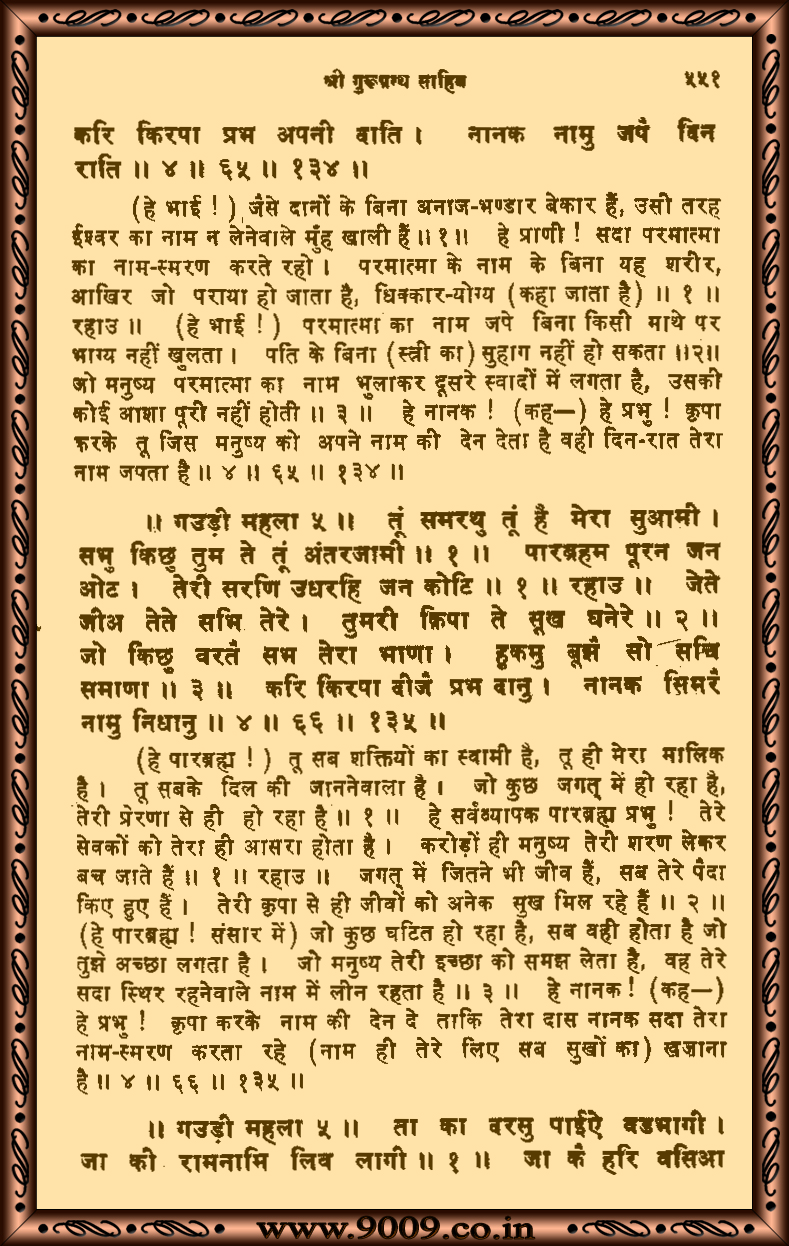 श्री गुरूग्रन्थ साहिब ५५१
करि किरपा प्रभ अपनी दाति । नानक नामु जपै दिन
राति ॥ ४ ॥ ६५ ॥ १३४ ॥
(हे भाई ! ) जैसे दानों के बिना अनाज-भण्डार बेकार हैं, उसी तरह
ईश्वर का नाम न लेनेवाले मुँह खाली हैं ॥ १ ॥ हे प्राणी ! सदा परमात्मा
का नाम-स्मरण करते रहो । परमात्मा के नाम के बिना यह शरीर,
आखिर जो पराया हो जाता है, धिक्कार-योग्य (कहा जाता है) ॥ १ ॥
रहाउ ॥ (हे भाई ! ) परमात्मा का नाम जपे बिना किसी माथे पर
भाग्य नहीं खुलता । पति के बिना (स्त्री का) सुहाग नहीं हो सकता ॥२॥
जो मनुष्य परमात्मा का नाम भुलाकर दूसरे स्वादों में लगता है, उसकी
कोई आशा पूरी नहीं होती ॥ ३ ॥ हे नानक ! (कह—) हे प्रभु ! कृपा
करके तू जिस मनुष्य को अपने नाम की देन देता है वही दिन-रात तेरा
नाम जपता है ॥ ४ ॥ ६५ ॥ १३४ ॥
॥ गउड़ी महला ५ ॥ तूं समरथु तूं है मेरा सुआमी ।
सभु किछु तुम ते तूं अंतरजामी ॥ १ ॥ पारब्रहम पूरन जन
ओट । तेरी सरणि उधरहि जन कोटि ॥ १ ॥ रहाउ ॥ जेते
जीअ तेते सभि तेरे । तुमरी क्रिपा ते सूख घनेरे ॥ २ ॥
जो किछु वरतै सभ तेरा भाणा । हुकमु बूझै सो सचि
समाणा ॥ ३ ॥ करि किरपा दीजै प्रभ दानु । नानक सिमरै
नामु निधानु ॥ ४ ॥ ६६ ॥ १३५ ॥
(हे पारब्रह्म ! ) तू सब शक्तियों का स्वामी है, तू ही मेरा मालिक
है । तू सबके दिल की जाननेवाला है । जो कुछ जगत् में हो रहा है,
तेरी प्रेरणा से ही हो रहा है ॥ १ ॥ हे सर्वव्यापक पारब्रह्म प्रभु ! तेरे
सेवकों को तेरा ही आसरा होता है । करोड़ों ही मनुष्य तेरी शरण लेकर
बच जाते हैं ॥ १ ॥ रहाउ ॥ जगत् में जितने भी जीव हैं, सब तेरे पैदा
किए हुए हैं । तेरी कृपा से ही जीवों को अनेक सुख मिल रहे हैं ॥ २ ॥
(हे पारब्रह्म ! संसार में) जो कुछ घटित हो रहा है, सब वही होता है जो
तुझे अच्छा लगता है । जो मनुष्य तेरी इच्छा को समझ लेता है, वह तेरे
सदा स्थिर रहनेवाले नाम में लीन रहता है ॥ ३ ॥ हे नानक ! (कह—)
हे प्रभु ! कृपा करके नाम की देन दे ताकि तेरा दास नानक सदा तेरा
नाम-स्मरण करता रहे (नाम ही तेरे लिए सब सुखों का) खज़ाना
है ॥ ४ ॥ ६६ ॥ १३५ ॥
॥ गउड़ी महला ५ ॥ ता का दरसु पाईऐ वडभागी ।
जा की रामनामि लिव लागी ॥ १ ॥ जा कै हरि वसिआ
www.9009.co.in